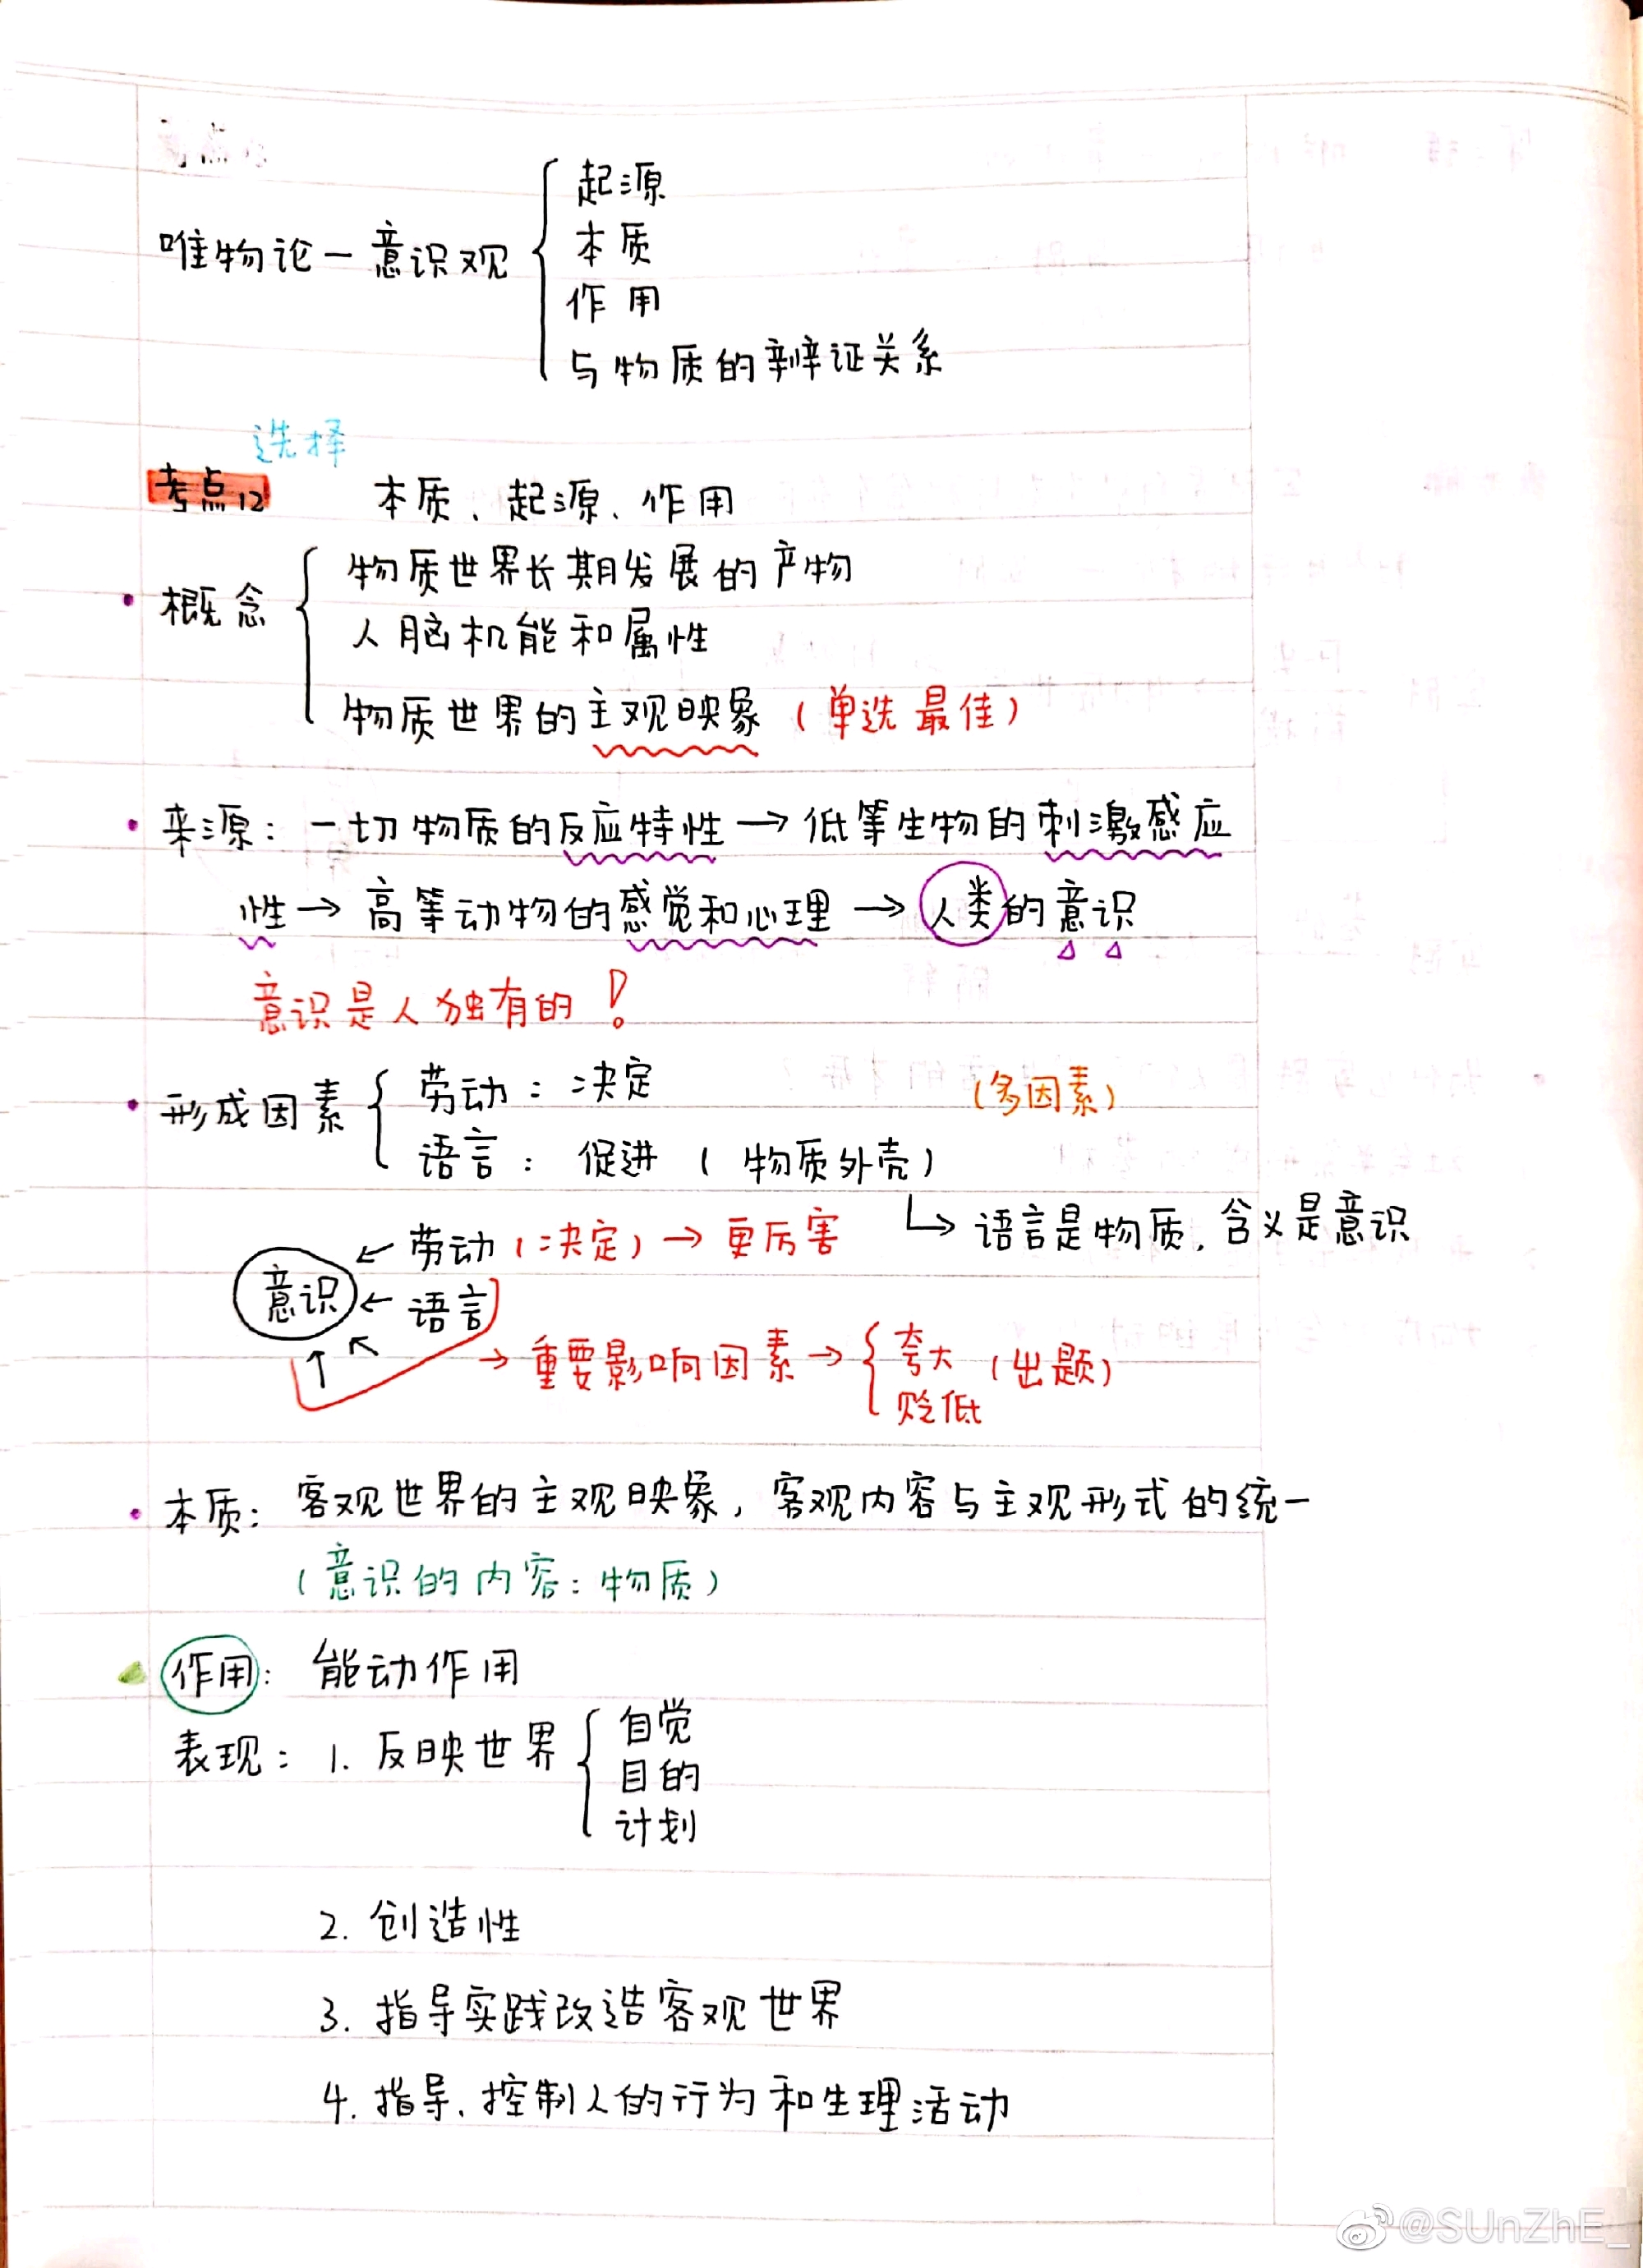 起源
本质
唯物论一意识观
作用
与物质的辩证关系
选择
考点12 本质、起源、作用
物质世界长期发展的产物
• 概念
人脑机能和属性
物质世界的主观映象(单选最佳)
• 来源: 一切物质的反应特性→低等生物的刺激感应
性→高等动物的感觉和心理→人类的意识
意识是人独有的!
劳动: 决定 (多因素)
• 形成因素
语言: 促进 (物质外壳)
↳ 语言是物质,含义是意识
← 劳动(决定)→更厉害
意识
← 语言
→ 重要影响因素→ 夸大 (出题)
贬低
• 本质: 客观世界的主观映象,客观内容与主观形式的统一
(意识的内容:物质)
作用: 能动作用
自觉
表现: 1. 反映世界
目的
计划
2. 创造性
3. 指导实践改造客观世界
4. 指导、控制人的行为和生理活动
@SUnZhE_